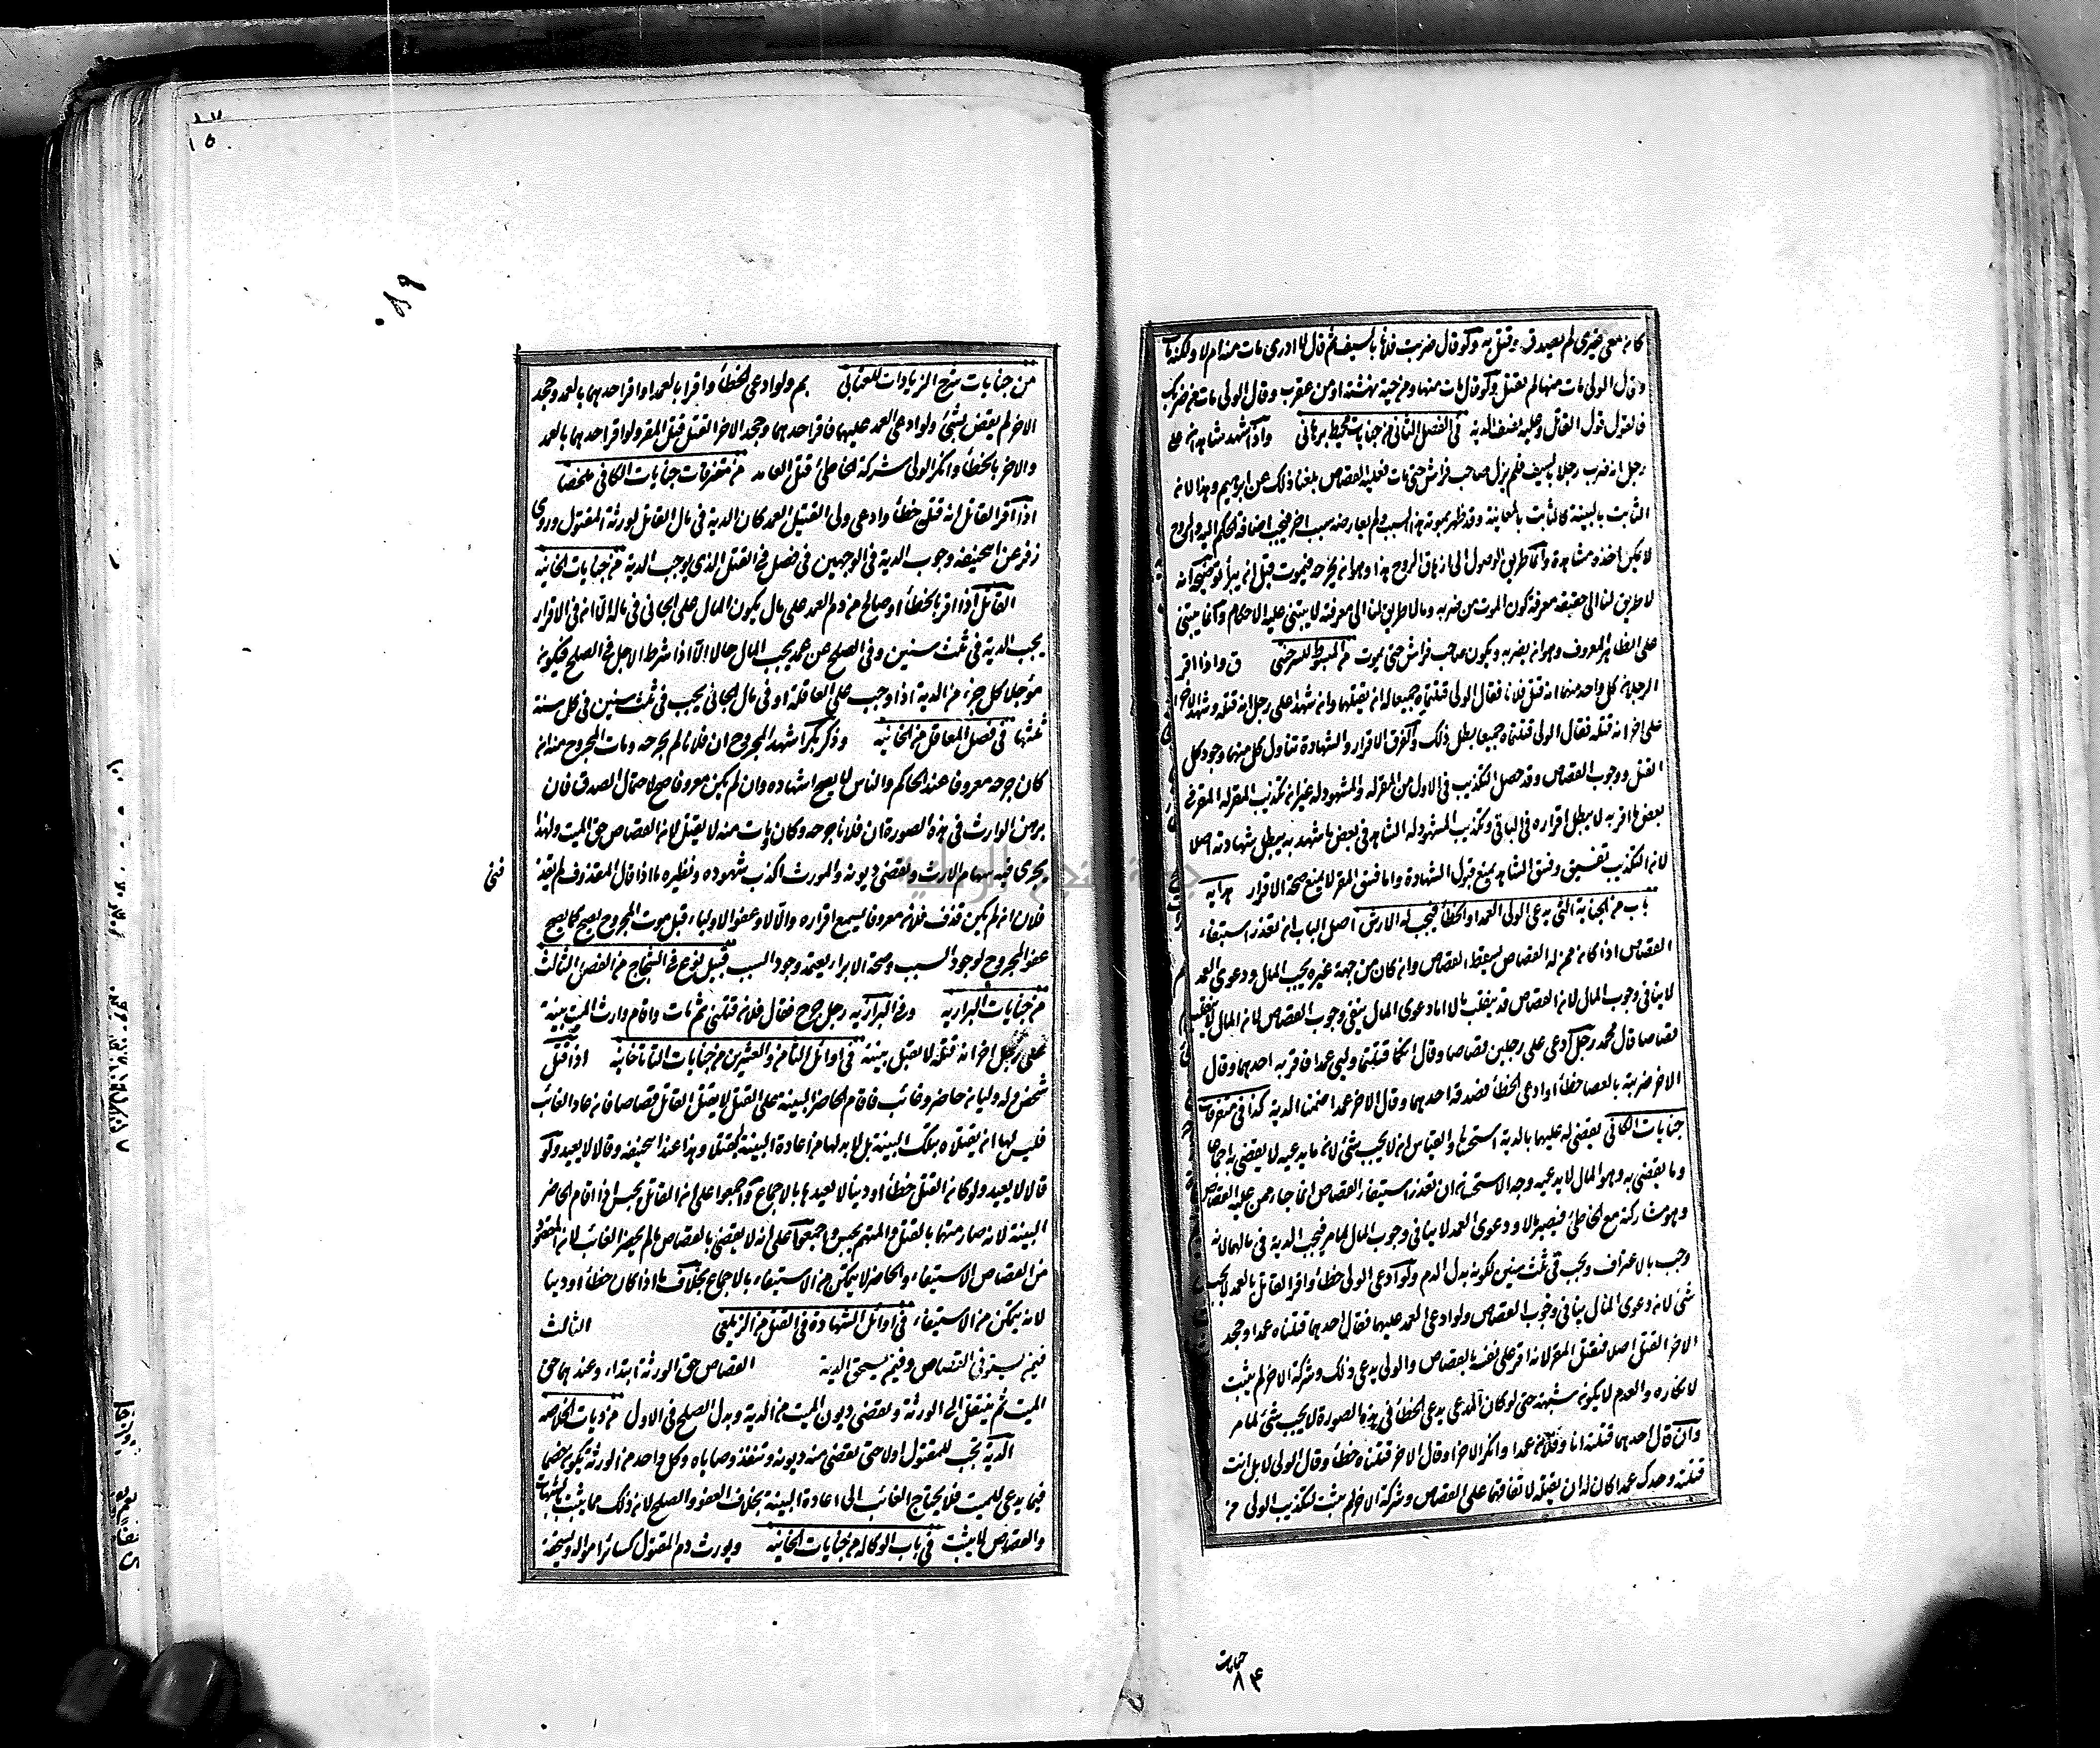 كان معى غيرى لم يصدق وقتل به ولو قال ضربت فلانا بالسيف ثم قال لا ادرى مات منه ام لا ولكنه مات
وقال الولى مات منها لم يقتل ولو قال مات منها ومن حية نهشته او من عقرب وقال الولى مات من ضربك
فالقول قول القاتل وعليه نصف الدية فى الفصل الثانى من جنايات محيط برهانى واذا شهد شاهدان على
رجل انه ضرب رجلا بسيف فلم يزل صاحب فراش حتى مات فعليه القصاص بلغنا ذلك عن ابراهيم وهذا لان
الثابت بالبينة كالثابت بالمعاينة وقد ظهر بموته هذا السبب ولم يعارضه سبب اخر فيجب اضافة الحكم اليه والروح
لا يمكن اخذه مشاهدة وانما طريق الوصول الى ازهاق الروح هذا وهو ان يجرحه فيموت قبل ان يبرأ توضيحه انه
لا طريق لنا الى حقيقة معرفة كون الموت من ضربه وما لا طريق لنا الى معرفته لا يبتنى عليه الاحكام وانما يبتنى
على الظاهر المعروف وهو انه يضربه ويكون صاحب فراش حتى يموت من المبسوط للسرخسى ق واذا اقر
الرجلان كل واحد منهما انه قتل فلانا فقال الولى قتلتماه جميعا له ان يقتلهما وان شهدا على رجل انه قتله وشهد الاخر
على اخر انه قتله فقال الولى قتلناه جميعا بطل ذلك والفرق الاقرار والشهادة تناول كل منهما وجود كل
القتل ووجوب القصاص وقد حصل التكذيب فى الاول من المقر له والمشهود له غير ان تكذيب المقر له المقر فى
بعض ما اقر به لا يبطل اقراره فى الباقى وتكذيب المشهود له الشاهد فى بعض ما شهد به يبطل شهادته اصلا
لان التكذيب تفسيق وفسق الشاهد يمنع قبول الشهادة واما فسق المقر لا يمنع صحة الاقرار هدايه
باب من الجناية التى يدعى الولى العمد او الخطأ فيجب له الارش اصل الباب ان تعذر استيفاء
القصاص اذا كان ممن له القصاص سقط القصاص وان كان من جهة غيره يجب المال ودعوى العمد
لا ينافى وجوب المال لان القصاص قد ينقلب مالا اما دعوى المال ينفى وجوب القصاص لان المال لا ينقلب
قصاصا قال محمد رجل ادعى على رجلين قصاصا وقال انكما قتلتما وليى عمدا فاقر به احدهما وقال
الاخر ضربته بالعصا خطأ او ادعى الخطأ فصدقه احدهما وقال الاخر عمدا ضمنا الدية كذا فى متفرقات
جنايات الكافى يقضى له عليهما بالدية استحسانا والقياس ان لا يجب شئ لان ما يدعيه لا يقضى به اجماعا
وما يقضى به وهو المال لا يدعيه وجه الاستحسان ان تعذر استيفاء القصاص انما جاء ممن عليه القصاص
وهو مشاركته مع الخاطئ فيصير مالا ودعوى العمد لا ينافى وجوب المال لما مر فيجب الدية فى مالهما لانه
وجب بالاعتراف ويجب فى ثلث سنين لكونه بدل الدم ولو ادعى الولى خطأ واقر القاتل بالعمد لا يجب
شئ لان دعوى المال ينافى وجوب القصاص ولو ادعى العمد عليهما فقال احدهما قتلناه عمدا وجحد
الاخر القتل اصلا فنقتل المقر لانه اقر على نفسه بالقصاص والولى يدعى ذلك وشركة الاخر لم يثبت
لانكاره والعدم لا يكون شبهة حتى لو كان المدعى يدعى الخطأ فى هذه الصورة لا يجب شئ لما مر
وان قال احدهما قتلته انا وفلان عمدا وانكر الاخر او قال الاخر قتلناه خطأ وقال الولى لا بل انت
قتلته وحدك عمدا كان له ان يقتله لاتفاقهما على القصاص وشركة الاخر لم يثبت لتكذيب الولى من
جنايات
٨٤
من جنايات شرح الزيادات للعتابى بم ولو ادعى الخطأ واقرا بالعمد او اقر احدهما بالعمد وجحد
الاخر لم يقض بشئ ولو ادعى العمد عليهما فاقر احدهما وجحد الاخر القتل قتل المقر ولو اقر احدهما بالعمد
والاخر بالخطأ وانكر الولى شركة الخاطئ قتل العامد من متفرقات جنايات الكافى ملخصا
اذا اقر القاتل انه قتل خطأ وادعى ولى القتيل العمد كان الدية فى مال القاتل لورثة المقتول وروى
زفر عن ابيحنيفه وجوب الدية فى الوجهين فى فصل فى القتل الذى يوجب الدية من جنايات الخانيه
القاتل اذا اقر بالخطأ او صالح من دم العمد على مال يكون المال على الجانى فى ماله الا انه فى الاقرار
يجب الدية فى ثلث سنين وفى الصلح عن عمد يجب المال حالا الا اذا شرط الاجل فى الصلح فيكون
مؤجلا كل جزء من الدية اذا وجب على العاقلة او فى مال الجانى يجب فى ثلث سنين فى كل سنة
ثلثها فى فصل المعاقل من الخانيه وذكر بكر اشهد المجروح ان فلانا لم يجرحه ومات المجروح منه ان
كان جرحه معروفا عند الحاكم والناس لا يصح اشهاده وان لم يكن معروفا صح لاحتمال الصدق فان
برهن الوارث فى هذه الصورة ان فلانا جرحه وكان مات منه لا يقبل لان القصاص حق الميت ولهذا
يجرى فيه سهام الارث وتقضى ديونه والمورث اكذب شهوده ونظيره ما اذا قال المقذوف لم يقذ
فنى
فلان ان لم يكن قذف فلان معروفا يسمع اقراره والا لا وعفو الاولياء قبل موت المجروح يصح كما يصح
عفو المجروح لوجود السبب وصحة الابراء يعتمد وجود السبب قبيل نوع فى الشجاج من الفصل الثالث
من جنايات البزازيه وفى البزازيه رجل جرح فقال فلان قتلنى ثم مات واقام وارث الميت بينة
على رجل اخر انه قتله لا تقبل بينته فى اوائل الثامن والعشرين من جنايات التاتارخانيه اذا قتل
شخص وله وليان حاضر وغائب فاقام الحاضر البينة على القتل لا يقتل القاتل قصاصا فان عاد الغائب
فليس لهما ان يقتلاه بتلك البينة بل لا بد لهما من اعادة البينة ليقتلا وهذا عند ابيحنيفه وقالا لا يعيد ولو
قالا لا يعيد ولو كان القتل خطأ او دينا لا يعيدها بالاجماع واجمعوا على ان القاتل يحبس اذا اقام الحاضر
البينة لانه صار متهما بالقتل والمتهم يحبس واجمعوا على انه لا يقضى بالقصاص ما لم يحضر الغائب لان المقصود
من القصاص الاستيفاء والحاضر لا يتمكن من الاستيفاء بالاجماع بخلاف ما اذا كان خطأ او دينا
لانه يتمكن من الاستيفاء فى اوائل الشهادة فى القتل من الزيلعى الثالث
فيمن يستوفى القصاص وفيمن يستحق الدية القصاص حق الورثة ابتداء وعندهما حق
الميت ثم ينتقل الى الورثة وتقضى ديون الميت من الدية وبدل الصلح فى الاول من ديات الخلاصه
الدية تجب للمقتول اولا حتى تقضى منه ديونه وتنفذ وصاياه وكل واحد من الورثة يكون خصما
فيما يدعى للميت فلا يحتاج الغائب الى اعادة البينة بخلاف العفو والصلح لان ذلك مما يثبت بالشبهات
والقصاص لا يثبت فى باب الوكاله من جنايات الخانيه ويورث دم المقتول كسائر امواله ويستحقه